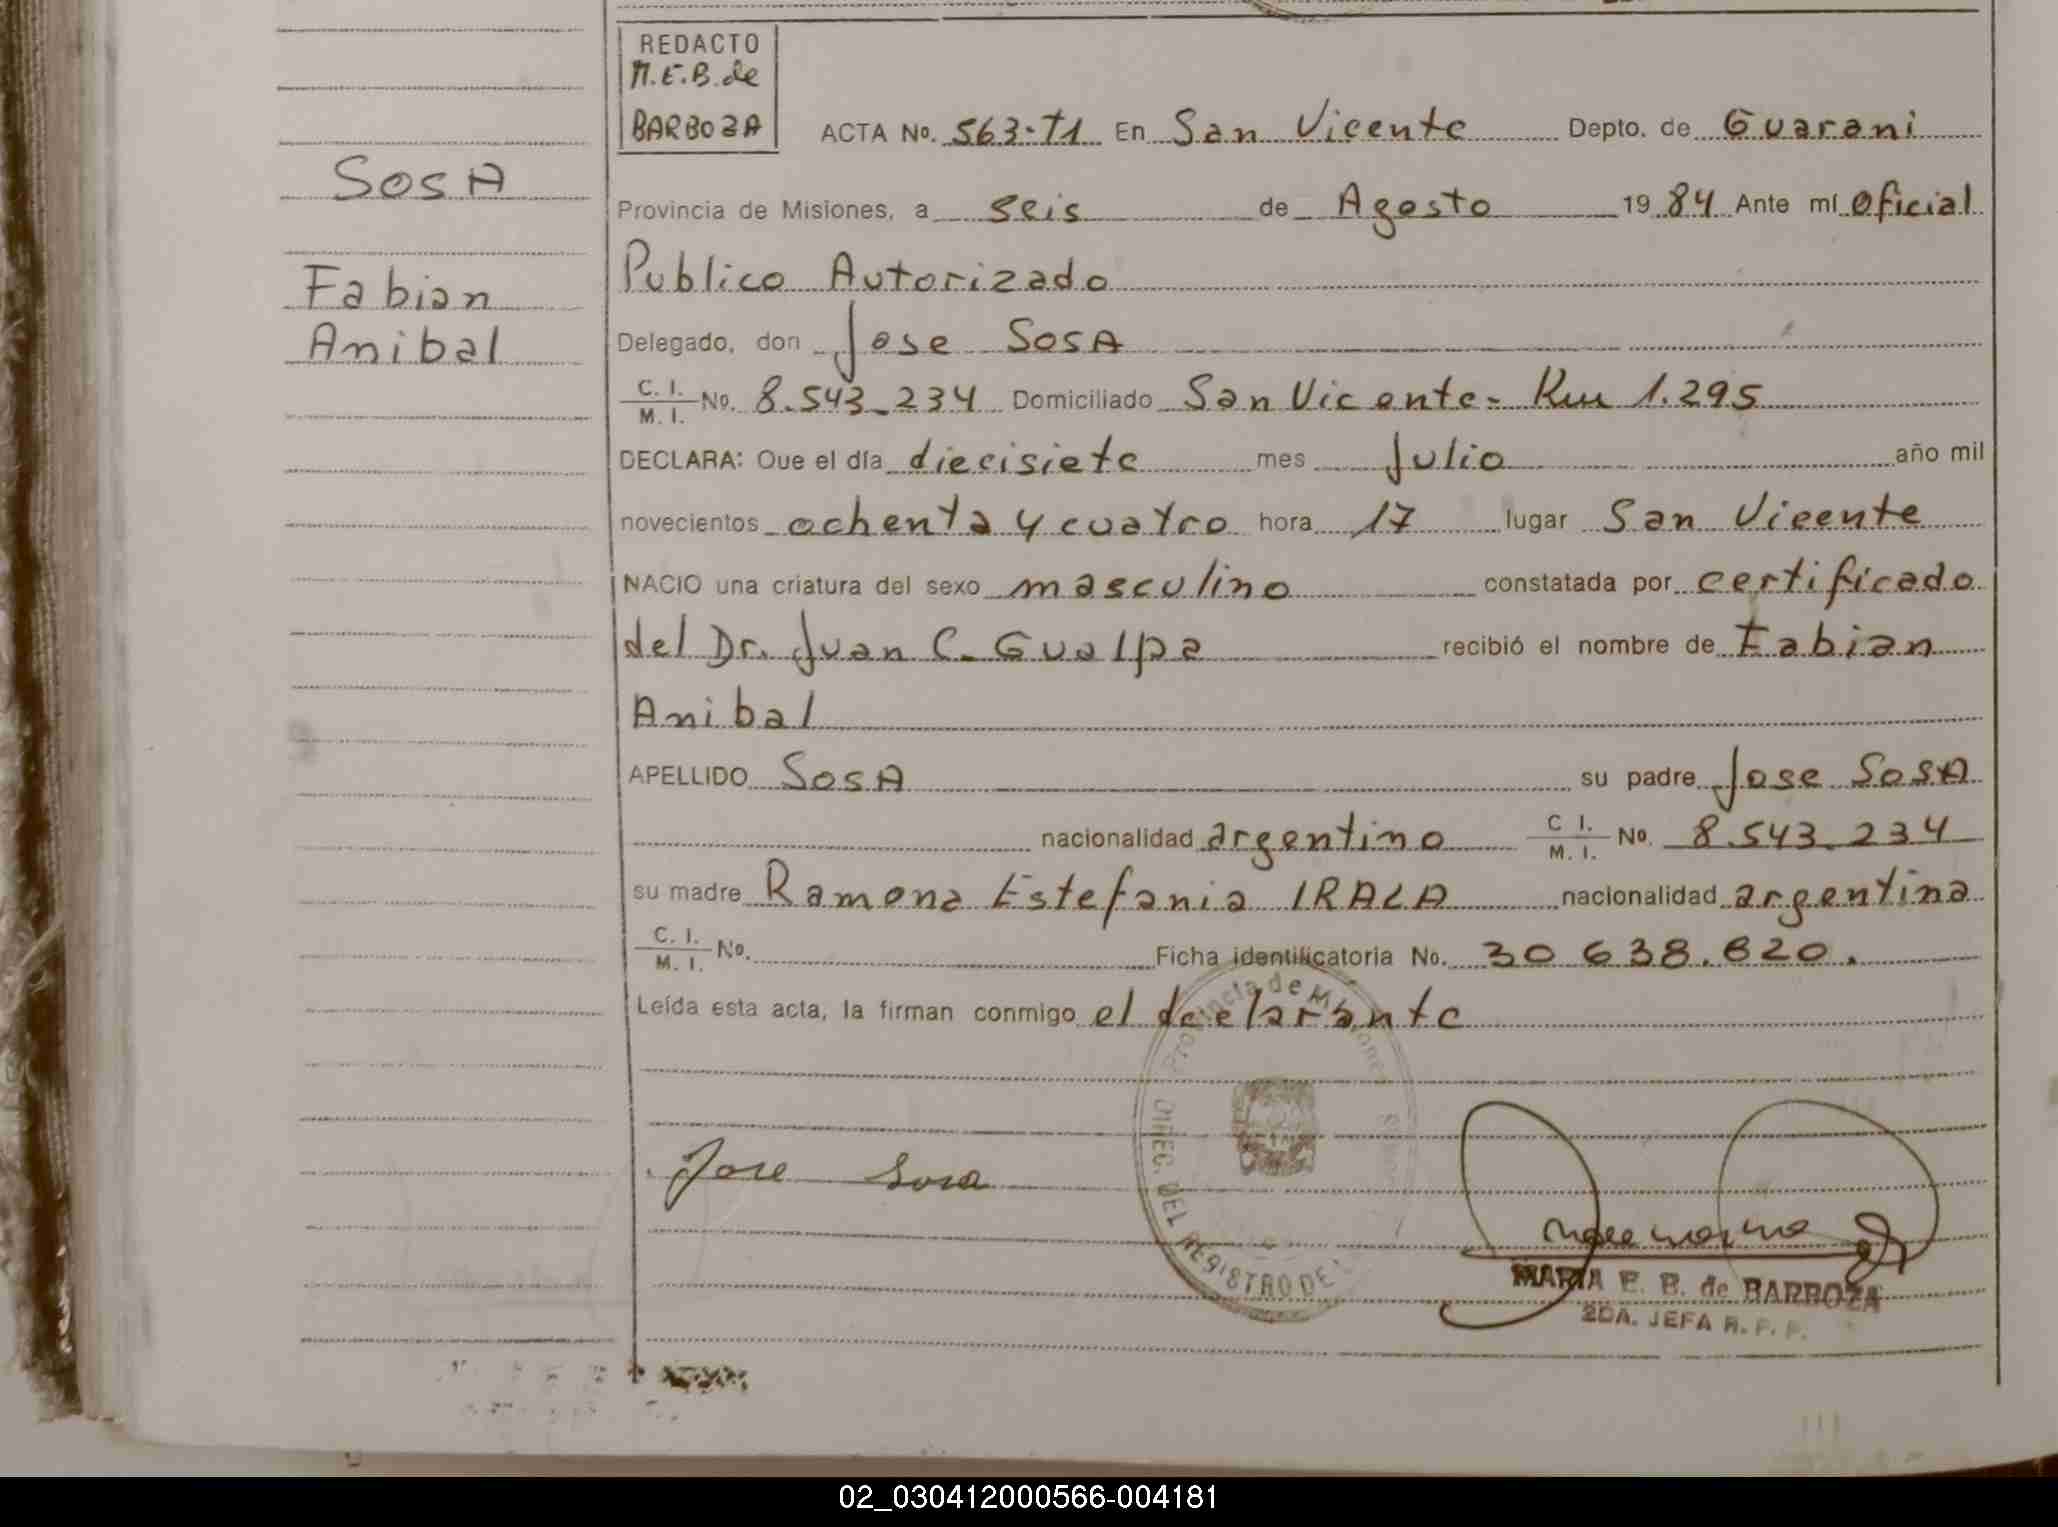 REDACTO
M.E.B. de
BARBOZA
ACTA No. 563-T1 En San Vicente Depto. de Guarani
SosA
Provincia de Misiones, a seis de Agosto 1984 Ante mí Oficial
Publico Autorizado
Fabian
Anibal
Delegado, don Jose SosA
C. I.
M. I. No. 8.543.234 Domiciliado San Vicente- Km 1.295
DECLARA: Que el día diecisiete mes Julio año mil
novecientos ochenta y cuatro hora 17 lugar San Vicente
NACIO una criatura del sexo masculino constatada por certificado
del Dr. Juan C. Gualpa recibió el nombre de Fabian
Anibal
APELLIDO SosA su padre Jose SosA
nacionalidad argentino C I. M. I. No. 8.543.234
su madre Ramona Estefania IRALA nacionalidad argentina
C. I.
M. I. No. Ficha identificatoria No. 30 638.820.
Leída esta acta, la firman conmigo el declarante
Provincia de Misiones
DIREC. DEL REGISTRO DE
Jose Sosa
MARIA E. B. de BARBOZA
2DA. JEFA R. P. P.
02_030412000566-004181